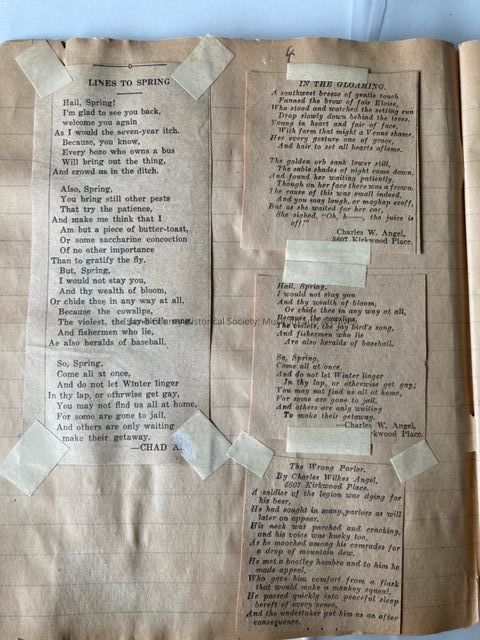 LINES TO SPRING
Hail, Spring!
I'm glad to see you back,
welcome you again
As I would the seven-year itch.
Because, you know,
Every bozo who owns a bus
Will bring out the thing,
And crowd us in the ditch.
Also, Spring,
You bring still other pests
That try the patience,
And make me think that I
Am but a piece of butter-toast,
Or some saccharine concoction
Of no other importance
Than to gratify the fly.
But, Spring,
I would not stay you,
And thy wealth of bloom,
Or chide thee in any way at all,
Because the cowslips,
The violest, the jay-bird's song,
And fishermen who lie,
Ae also heralds of baseball.
So, Spring,
Come all at once,
And do not let Winter linger
In thy lap, or othrwise get gay,
You may not find us all at home,
For some are gone to jail,
And others are only waiting
make their getaway.
—CHAD A.
IN THE GLOAMING.
A southwest breeze of gentle touch
Fanned the brow of fair Eloise,
Who stood and watched the setting sun
Drop slowly down behind the trees.
Young in heart and fair of face,
With form that might a Venus shame,
Her every gesture one of grace,
And hair to set all hearts aflame.
The golden orb sank lower still,
The sable shades of night came down,
And found her waiting patiently,
Though on her face there was a frown.
The cause of this was small indeed,
And you may laugh, or mayhap scoff,
But as she waited for her car,
She sighed, "Oh, h——, the juice is
off!"
Charles W. Angel,
5607 Kirkwood Place.
Hail, Spring,
I would not stay you
And thy wealth of bloom,
Or chide thee in any way at all,
Because the cowslips,
The violets, the jay bird's song,
And fishermen who lie
Are also heralds of baseball.
So, Spring,
Come all at once,
And do not let Winter linger
In thy lap, or otherwise get gay;
You may not find us all at home,
For some are gone to jail,
And others are only waiting
To make their getaway.
—Charles W. Angel,
Kirkwood Place.
The Wrong Parlor.
By Charles Wilkes Angel,
5607 Kirkwood Place.
A soldier of the legion was dying for
his beer,
He had sought in many parlors as will
later on appear.
His neck was parched and cracking,
and his voice was husky too,
As he mooched among his comrades for
a drop of mountain dew.
He met a bootleg hombre and to him he
made appeal,
Who gave him comfort from a flask
that would make a monkey squeal.
He passed quickly into peaceful sleep
bereft of every sense,
And the undertaker got him as an after
consequence.
Historical Society: